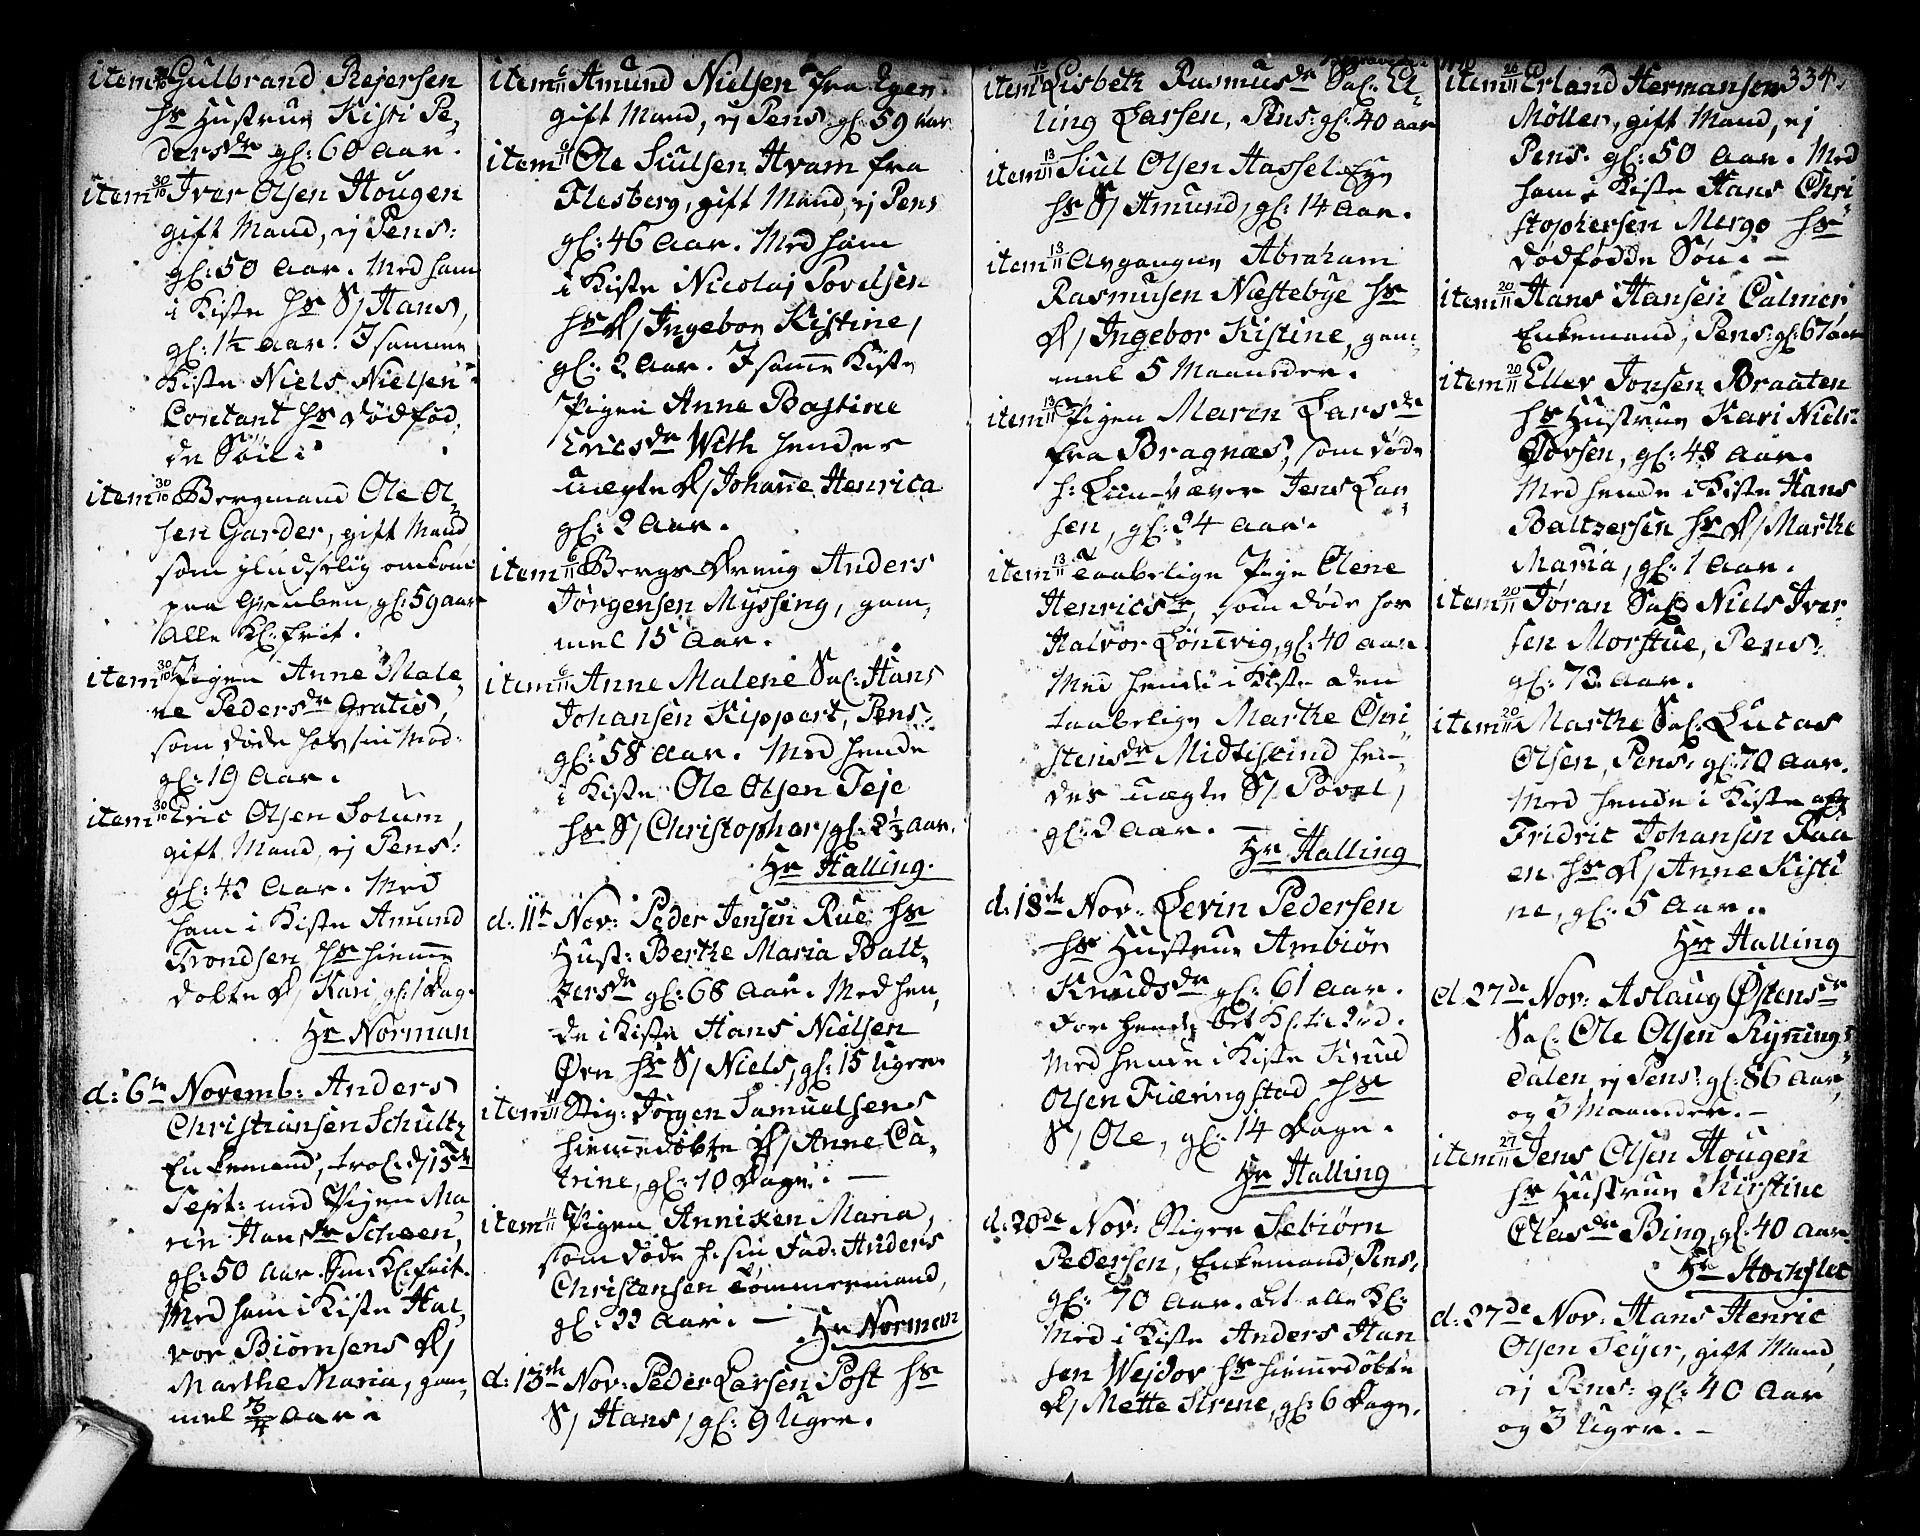 item 30/10 Gulbrand Rejersen
hs Hustrue Kisti Pe,
dersdr gl: 60 Aar.
item 30/10 Iver Olsen Hougen
gift Mand, ej Pens:
gl: 50 Aar. Med ham
i Kiste hs S/ Hans,
gl: 1½ Aar. I samme
Kiste Niels Nielsen
Contant hs dødfød,
de Søn:
item 30/10 Bergmand Ole Ol,
sen Garder, gift Mand
som pludselig omkom
paa Gruben, gl: 59 aar
alle Kl: frit.
item 30/10 Pigen Anne Male,
ne Pedersdr Gratis,
som døde hos sin Mod:
gl: 19 Aar.
item 30/10 Eric Olsen Solum,
gift Mand, ej Pens:
gl: 42 Aar. Med
ham i Kiste Amund
Trondsen hs hiemme
døbte D/ Kari, gl: 1 Dag.
Hr Norman
d: 6te Novemb: Anders
Christiansen Schultz
Enkemand, trol: d/ 15de
Sept: med Pigen Ma,
ren Hansdr Scheen,
gl: 50 Aar. Sm: Kl: frit.
Med ham i Kiste Hal,
vor Biørnsens D/
Marthe Maria, gam,
mel 3/4 Aar.
item 6/11 Amund Nielsen fra Egen.
gift Mand, ej Pens gl: 59 Aar
item 6/11 Ole Siulsen Hvam fra
Flesberg, gift Mand, ej Pens
gl: 46 Aar. Med ham
i Kiste Nicolaj Povelsen
hs D/ Ingebor Kistine,
gl: 2 Aar. I same Kiste
Pigen Anne Bastine
Ericsdr With hendes
uægte D/ Johane Henrica
gl: 2 Aar.
item 6/11 Bergs Dreng Anders
Jørgensen Myssing, gam,
mel 15 Aar.
item 6/11 Anne Malene Sal: Hans
Johansen Kippert, Pens:
gl: 58 Aar. Med hende
i Kiste Ole Olsen Teje
hs S/ Christopher, gl: 2½ Aar.
Hr Halling.
d: 11te Nov: Peder Jensen Rue hs
Hust: Berthe Maria Balt,
zersdr gl: 68 Aar. Med hen,
de i Kiste Hans Nielsen
Øen hs S/ Niels, gl: 15 Uger.
item 11/11 Stig: Jørgen Samuelsens
hiemmedøbte D/ Anne Ca,
trine, gl: 10 Dage. —
item 11/11 Pigen Annixen Maria,
som døde h: sin Fad: Anders
Christensen Tømmermand,
gl: 22 Aar. —
Hr Norman
d: 13de Nov: Peder Larsen Post hs
S/ Hans, gl: 9 Uger.
item 13/11 Lisbeth Rasmusdr Sal: El,
ling Larsen, Pens: gl: 40 aar
item 13/11 Siul Olsen Hassel Eye
hs S/ Amund, gl: 14 Aar.
item 13/11 Avgangen Abraham
Rasmusen Næstebye hs
D/ Ingebor Kistine, gam,
mel 5 Maaneder.
item 13/11 Pigen Maren Larsdr
fra Bragnæs, som døde
h: Liin-væver Jens Lar,
sen, gl: 24 Aar.
item 13/11 Taabelige Pige Olene
Henricsdr, som døde hos
Halvor Lønnvig, gl: 40 aar.
Med hende i Kiste den
taabelige Marthe Chri,
stensdr Midtistrind hen,
des uægte S/ Povel,
gl: 2 Aar. —
Hr Halling
d: 18de Nov: Levin Pedersen
hs Hustrue Ambiør
Knudsdr gl: 61 Aar.
For hende bet Kl: til Bed.
Med hende i Kiste Knud
Olsen Fiæringstad hs
S/ Ole, gl: 14 Dage.
Hr Halling
d: 20de Nov: Stiger Sebiørn
Pedersen, Enkemand, Pens,
gl: 70 Aar. bet alle Kl:
Med i Kiste Anders Han
sen Wejdor hs hiemmedøbte
D/ Mette Sirene, gl: 6 Dage.
334.
item 20/11 Erland Hermansen
Møller, gift Mand, ej
Pens. gl: 50 Aar. Med
ham i Kiste Hans Chri
stophersen Mergo hs
dødfødde Søn. —
item 20/11 Hans Hansen Calmer
Enkemand, Pens: gl: 67 aar
item 20/11 Ellev Jonsen Braaten
hs Hustrue Kari Niels
Torsen, gl: 48 Aar.
Med hende i Kiste Hans
Baltzersen hs D/ Marthe
Maria, gl: 1 Aar.
item 20/11 Jøran Sal Niels Iver,
sen Morstue, Pens.
gl: 73 Aar.
item 20/11 Marthe Sal: Lucas
Olsen, Pens: gl: 70 Aar.
Med hende i Kiste
Fridric Johansen Raa
en hs D/ Anne Kisti
ne, gl: 5 Aar.
Hr Halling
d. 27de Nov: Aslaug Østensdr
Sal: Ole Olsen Rynnings
dalen ej Pens: gl: 86 Aar,
og 3 Maaneder. —
item 27/11 Jens Olsen Hougen
hs Hustrue Kirstine
Olasdr Bing, gl: 40 Aar.
Hr Stochflet
d: 27de Nov: Hans Henric
Olsen Tejer, gift Mand,
ej Pens: gl: 40 Aar
og 3 Uger. —